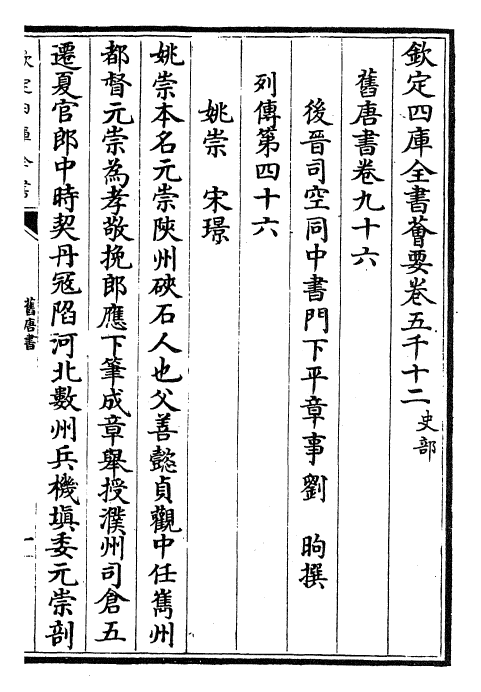 欽定四庫全書薈要卷五千十二 史部
舊唐書卷九十六
後晉司空同中書門下平章事劉 昫撰
列傳第四十六
姚崇 宋璟
姚崇本名元崇陝州硤石人也父善懿貞觀中任嶲州
都督元崇為孝敬挽郎應下筆成章舉授濮州司倉五
遷夏官郎中時契丹寇陷河北數州兵機填委元崇剖
欽定四庫全書
舊唐書
一